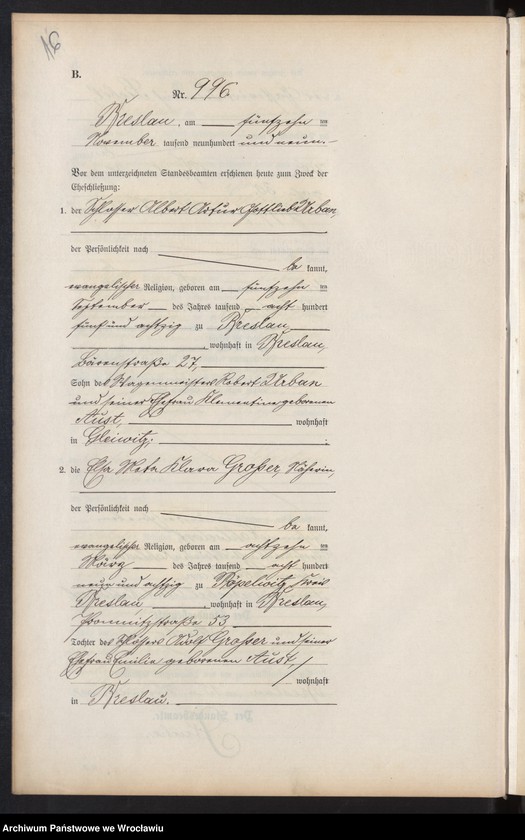 16
B.
Nr. 996
Breslau, am fünfzehn ten
November tausend neunhundert und neun.
Vor dem unterzeichneten Standesbeamten erschienen heute zum Zweck der
Eheschließung:
1. der Schlosser Albert Artur Gottlieb Urban,
der Persönlichkeit nach
be kannt,
evangelischer Religion, geboren am fünfzehn ten
September des Jahres tausend acht hundert
fünf und achtzig zu Breslau
, wohnhaft in Breslau,
Bärenstraße 27,
Sohn des Wagenmeisters Robert Urban
und seiner Ehefrau Klementine geborenen
Aust, wohnhaft
in Gleiwitz;
2. die Elsa Meta Klara Großer, Näherin,
der Persönlichkeit nach
be kannt,
evangelischer Religion, geboren am achtzehn ten
März des Jahres tausend acht hundert
neun und achtzig zu Pöpelwitz, Kreis
Breslau, wohnhaft in Breslau,
Posenerstraße 53
Tochter des Schlossers Adolf Großer und seiner
Ehefrau Emilie geborenen Aust,
wohnhaft
in Breslau.
Archiwum Państwowe we Wrocławiu